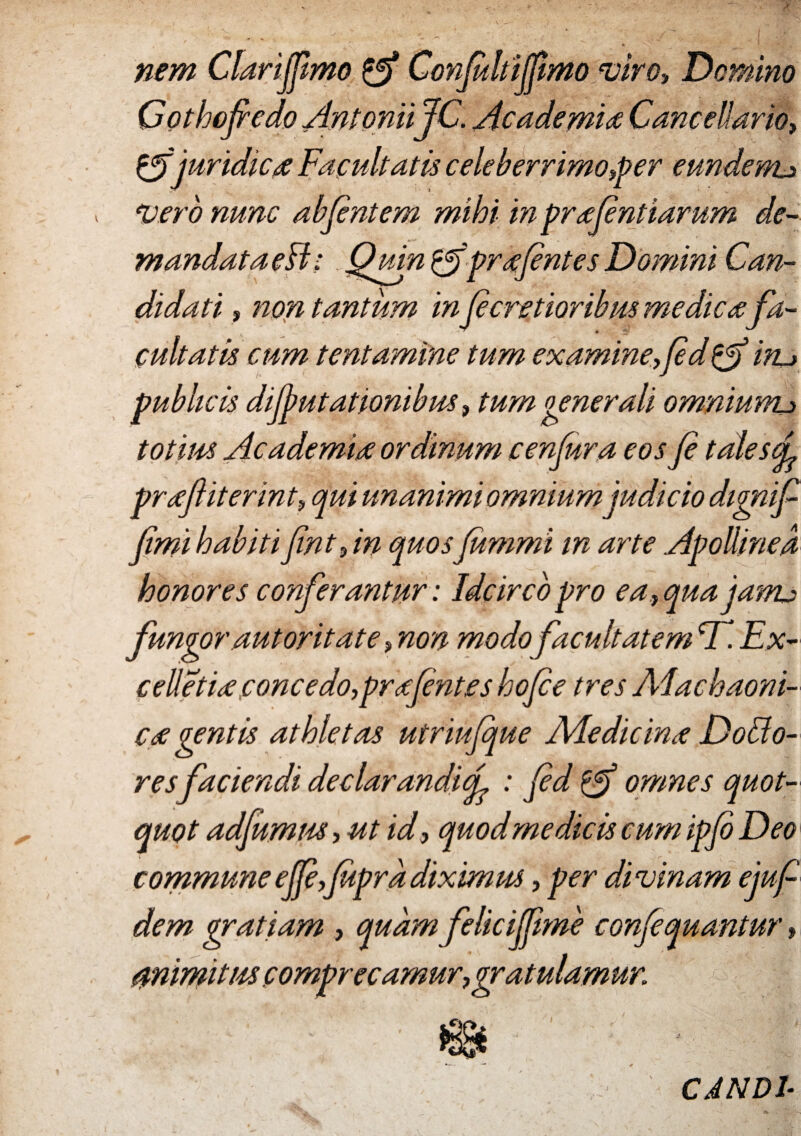 nem Clariſſimo & Conſultiſſimo viro, Domino
Gothofredo Antonii JC. Academiæ Cancellario,
& juridicæ Facultatis celeberrimo, per eundem
verò nunc abſentem mihi in præſentiarum de-
mandata eſt: Quin & præſentes Domini Can-
didati, non tantùm in ſecretioribus medicæ fa-
cultatis cum tentamine tum examine, ſed & in
publicis diſputationibus, tum generali omnium
totius Academiæ ordinum cenſura eos ſe talesq;
præſtiterint, qui unanimi omnium judicio digniſ-
ſimi habiti ſint, in quos ſummi in arte Apollineâ
honores conferantur: Idcircò pro ea, qua jam
fungor autoritate, non modo facultatem T. Ex-
cellẽtiæ concedo, præſentes hoſce tres Machaoni-
cæ gentis athletas utriuſque Medicinæ Docto-
res faciendi declarandiq; : ſed & omnes quot-
quot adſumus, ut id, quod medicis cum ipſo Deo
commune eſſe, ſuprà diximus, per divinam ejuſ-
dem gratiam, quàm feliciſſimè conſequantur,
animitus comprecamur, gratulamur.
CANDI-